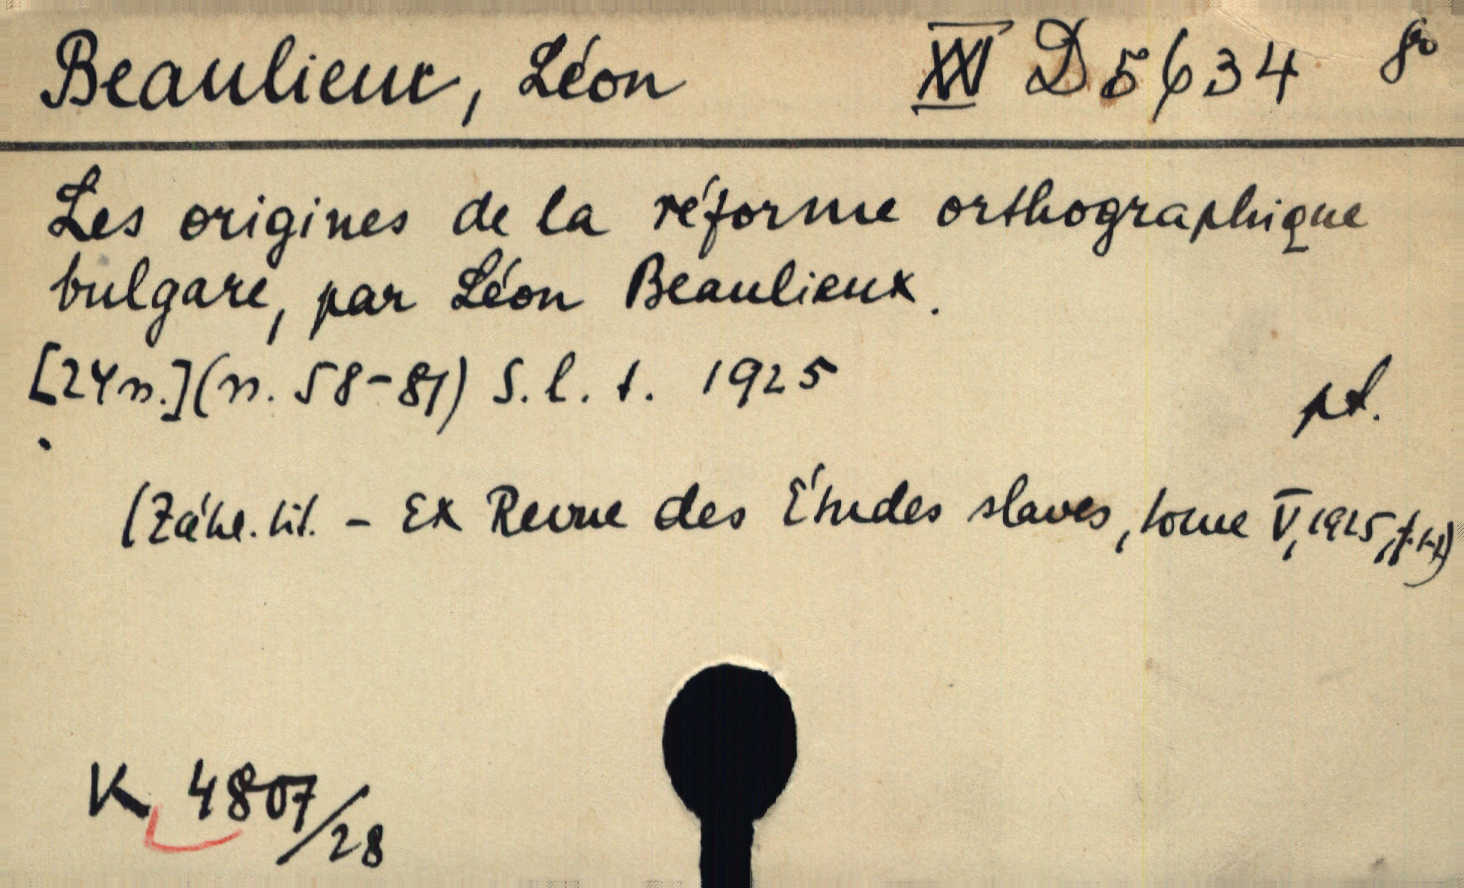 Beaulieux, Léon XXI D 5634 8o
Les origines de la réforme orthographique
bulgare, par Léon Beaulieux.
[24 n.] (n. 58-81) S. l. t. 1925
pt.
(Záhl. tit. - Ex Revue des Études slaves, tome V, 1925, f. 1-2)
K 4807/28